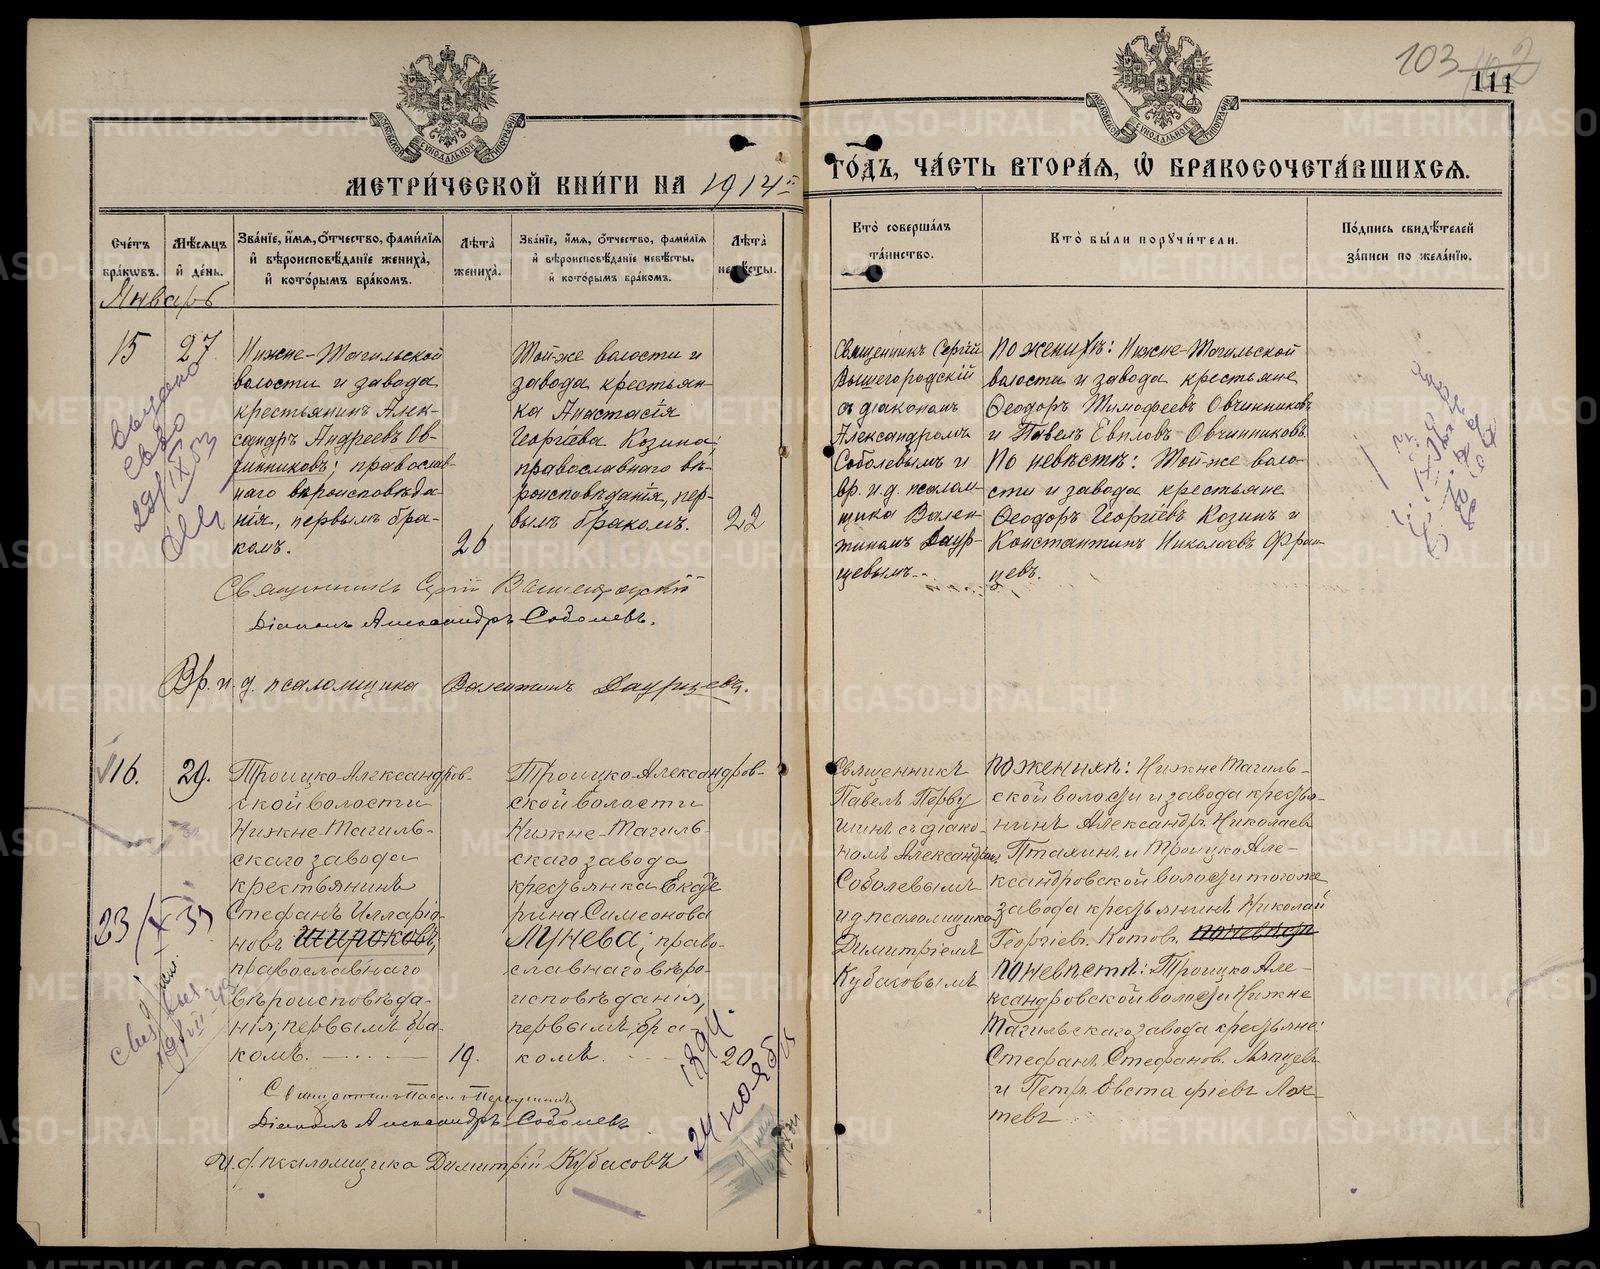 103 102
111
МЕТРИ́ЧЕСКОЙ КНИ́ГИ НА 1914 г.
ГО́ДЪ, ЧА́СТЬ ВТОРА́Я, Ѽ БРАКОСОЧЕТА́ВШИХСЯ.
Сче́тъ бра́ковъ.
Мѣ́сяцъ и҆ де́нь.
Зва́нїе, и҆́мя, ѻ҆́тчество, фами́лїѧ
и҆ вѣроисповѣ́данїе жениха̀,
и҆ кото́рымъ бра́комъ.
Лѣ́та̀
жениха̀.
Зва́нїе, и҆́мя, ѻ҆́тчество, фами́лїѧ
и҆ вѣроисповѣ́данїе невѣ́сты,
и҆ кото́рымъ бра́комъ.
Лѣ́та̀
невѣ́сты.
Кто̀ соверша́лъ
та́инство.
Кто̀ бы́ли поручи́тели.
По́дпись свидѣ́телей
за́писи по жела́нїю.
Январь
15
27
Нижне-Тагильской
волости и завода
крестьянинъ Алек-
сандръ Андреевъ Ов-
чинниковъ; православ-
наго вѣроисповѣда-
нія, первымъ бра-
комъ.
26
Той-же волости и
завода крестьян-
ка Анастасія
Георгіева Козина;
православнаго вѣ-
роисповѣданія, пер-
вымъ бракомъ.
22
Священникъ Сергій
Вышегородскій
съ діакономъ
Александромъ
Соболевымъ и
вр. и. д. псалом-
щика Вален-
тиномъ Даур-
цевымъ.
По женихѣ: Нижне-Тагильской
волости и завода крестьяне
Ѳеодоръ Тимофеевъ Овчинниковъ
и Павелъ Евпловъ Овчинниковъ.
По невѣстѣ: Той-же воло-
сти и завода крестьяне
Ѳеодоръ Георгіевъ Козинъ и
Константинъ Николаевъ Фран-
цевъ.
Священникъ Сергій Вышегородскій
Діаконъ Александръ Соболевъ.
Вр. и. д. псаломщика Валентинъ Даурцевъ.
16.
29.
Троицко-Александров-
ской волости
Нижне-Тагиль-
скаго завода
крестьянинъ
Стефанъ Илларіо-
новъ Широковъ,
православнаго
вѣроисповѣда-
нія, первымъ бра-
комъ.
19.
Троицко-Александров-
ской волости
Нижне-Тагиль-
скаго завода
крестьянка Екате
рина Симеонова
Лунева; право-
славнаго вѣро-
исповѣданія,
первымъ бра-
комъ.
20
Священникъ
Павелъ Перву
шинъ съ діако-
номъ Александром
Соболевымъ
и д псаломщика
Димитріемъ
Кубасовымъ
По женихѣ: Нижне Тагиль-
ской волости и завода кресть-
янинъ Александръ Николаевъ
Птахинъ и Троицко Але-
ксандровской волости того же
завода крестьянинъ Николай
Георгіевъ Котовъ.
По невѣстѣ: Троицко Але-
ксандровской волости Нижне
Тагильскаго завода крестьяне:
Стефанъ Стефановъ
и Петръ Евстафіевъ Лок-
тевъ
23/X 33
1894.
24 ноября
Священникъ Павелъ Первушинъ
Діаконъ Александръ Соболевъ
И. д. псаломщика Димитрій Кубасовъ
METRIKI.GASO-URAL.RU